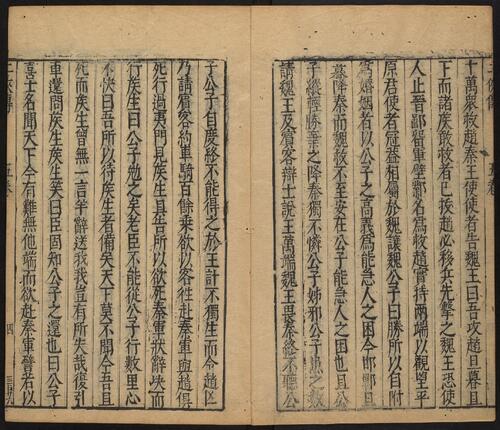 十萬眾救趙秦王使使者告魏王曰吾攻趙旦暮且
下而諸侯敢救者已拔趙必移兵先擊之魏王恐使
人止晉鄙留軍壁鄴名為救趙實持兩端以觀望平
原君使者冠蓋相屬於魏讓魏公子曰勝所以自附
為婚姻者以公子之高義為能急人之困今邯鄲旦
暮降秦而魏救不至安在公子能急人之困也且公
子縱輕勝棄之降秦獨不憐公子姊邪公子患之數
請魏王及賓客辯士說王萬端魏王畏秦終不聽公
子公子自度終不能得之於王計不獨生而令趙亡
乃請賓客約車騎百餘乘欲以客往赴秦軍與趙俱
死行過夷門見侯生具告所以欲死秦軍狀辭決而
行侯生曰公子勉之矣老臣不能從公子行數里心
不快曰吾所以待侯生者備矣天下莫不聞今吾且
死而侯生曾無一言半辭送我我豈有所失哉復引
車還問侯生侯生笑曰臣固知公子之還也曰公子
喜士名聞天下今有難無他端而欲赴秦軍譬若以
五卷
四